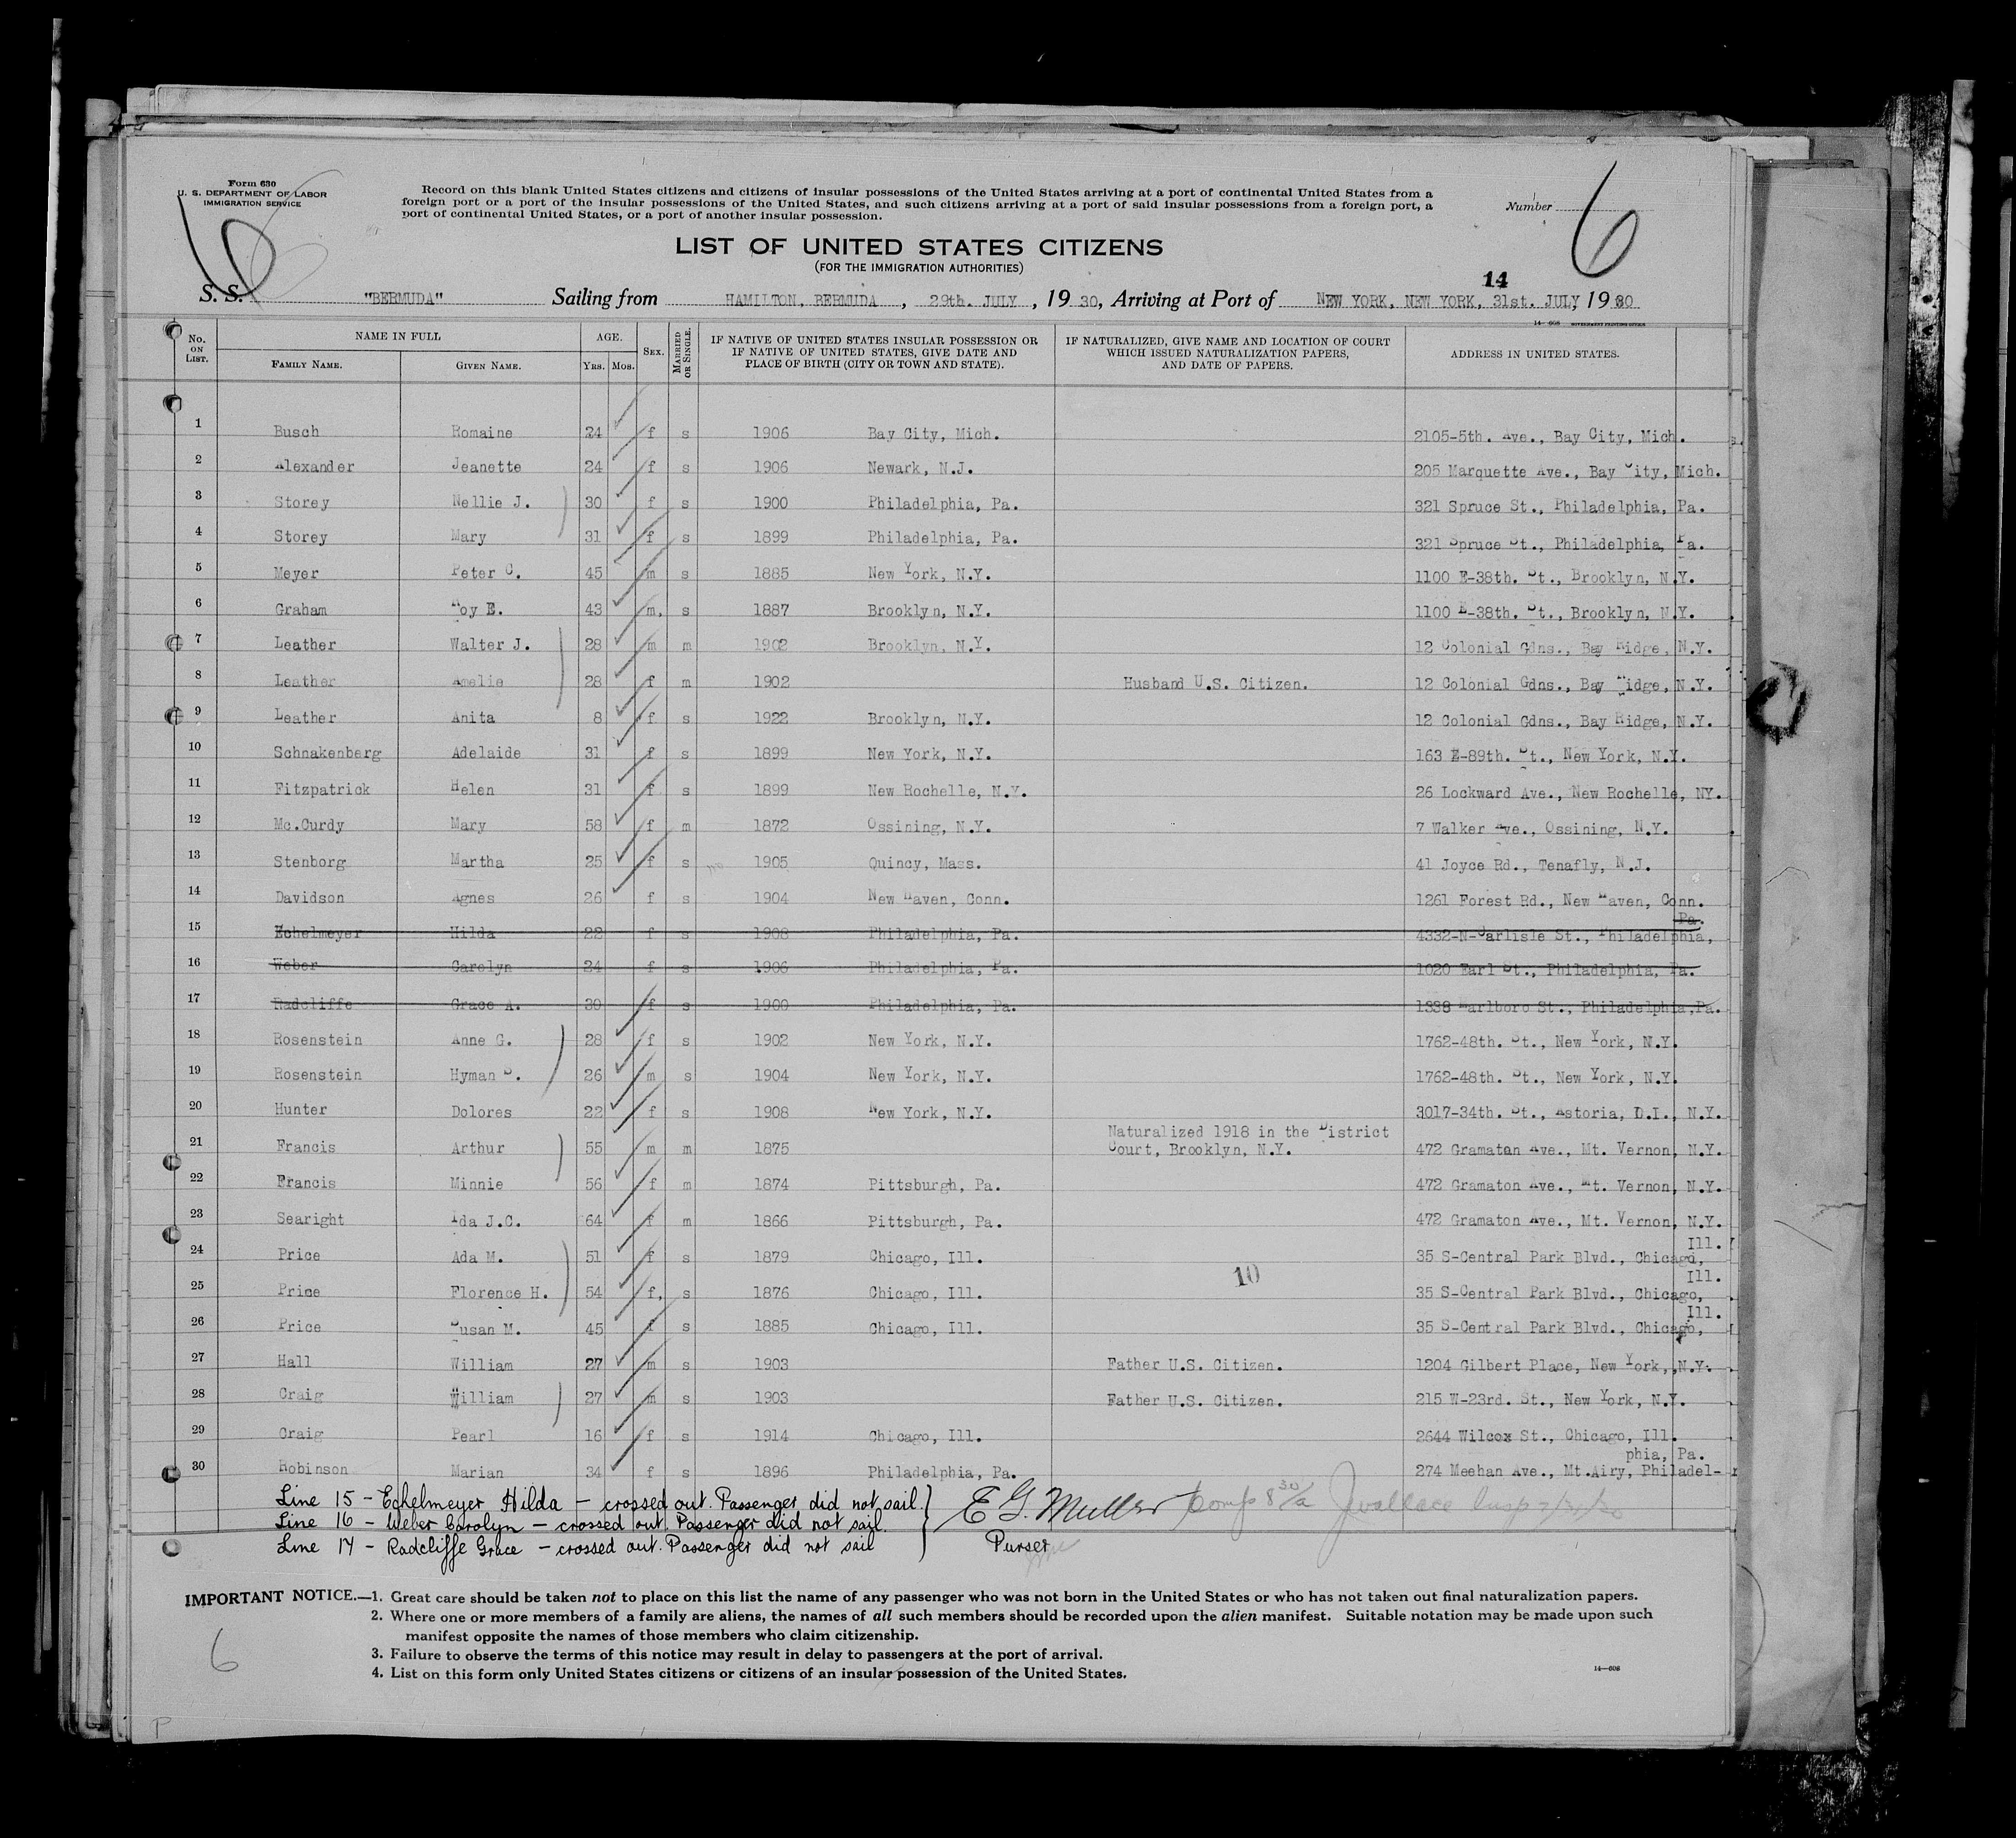 Form 630
U. S. DEPARTMENT OF LABOR
IMMIGRATION SERVICE
6
Record on this blank United States citizens and citizens of insular possessions of the United States arriving at a port of continental United States from a
foreign port or a port of the insular possessions of the United States, and such citizens arriving at a port of said insular possessions from a foreign port, a
port of continental United States, or a port of another insular possession.
Number 6
LIST OF UNITED STATES CITIZENS
(FOR THE IMMIGRATION AUTHORITIES)
14
S. S. "BERMUDA" Sailing from HAMILTON, BERMUDA , 29th. JULY , 19 30, Arriving at Port of NEW YORK, NEW YORK, 31st. JULY, 19 30
14—608 GOVERNMENT PRINTING OFFICE
No. ON LIST. NAME IN FULL AGE. SEX. MARRIED OR SINGLE. IF NATIVE OF UNITED STATES INSULAR POSSESSION OR IF NATIVE OF UNITED STATES, GIVE DATE AND PLACE OF BIRTH (CITY OR TOWN AND STATE). IF NATURALIZED, GIVE NAME AND LOCATION OF COURT WHICH ISSUED NATURALIZATION PAPERS, AND DATE OF PAPERS. ADDRESS IN UNITED STATES.
FAMILY NAME. GIVEN NAME. YRS. MOS.
1 Busch Romaine 24 f s 1906 Bay City, Mich. 2105-5th. Ave., Bay City, Mich.
2 Alexander Jeanette 24 f s 1906 Newark, N.J. 205 Marquette Ave., Bay City, Mich.
3 Storey Nellie J. 30 f s 1900 Philadelphia, Pa. 321 Spruce St., Philadelphia, Pa.
4 Storey Mary 31 f s 1899 Philadelphia, Pa. 321 Spruce St., Philadelphia, Pa.
5 Meyer Peter C. 45 m s 1885 New York, N.Y. 1100 E-38th. St., Brooklyn, N.Y.
6 Graham Roy E. 43 m. s 1887 Brooklyn, N.Y. 1100 E-38th. St., Brooklyn, N.Y.
7 Leather Walter J. 28 m m 1902 Brooklyn, N.Y. 12 Colonial Gdns., Bay Ridge, N.Y.
8 Leather Amelie 28 f m 1902 Husband U.S. Citizen. 12 Colonial Gdns., Bay Ridge, N.Y.
9 Leather Anita 8 f s 1922 Brooklyn, N.Y. 12 Colonial Gdns., Bay Ridge, N.Y.
10 Schnakenberg Adelaide 31 f s 1899 New York, N.Y. 163 E-89th. St., New York, N.Y.
11 Fitzpatrick Helen 31 f s 1899 New Rochelle, N.Y. 26 Lockward Ave., New Rochelle, NY.
12 Mc.Curdy Mary 58 f m 1872 Ossining, N.Y. 7 Walker Ave., Ossining, N.Y.
13 Stenborg Martha 25 f s 1905 Quincy, Mass. 41 Joyce Rd., Tenafly, N.J.
14 Davidson Agnes 26 f s 1904 New Haven, Conn. 1261 Forest Rd., New Haven, Conn.
Pa.
15 Echelmeyer Hilda 22 f s 1908 Philadelphia, Pa. 4332-N-Carlisle St., Philadelphia,
16 Weber Carolyn 24 f s 1906 Philadelphia, Pa. 1020 Earl St., Philadelphia, Pa.
17 Radcliffe Grace A. 30 f s 1900 Philadelphia, Pa. 1338 Marlboro St., Philadelphia,Pa.
18 Rosenstein Anne G. 28 f s 1902 New York, N.Y. 1762-48th. St., New York, N.Y.
19 Rosenstein Hyman S. 26 m s 1904 New York, N.Y. 1762-48th. St., New York, N.Y.
20 Hunter Dolores 22 f s 1908 New York, N.Y. 3017-34th. St., Astoria, D.I., N.Y.
Naturalized 1918 in the District
21 Francis Arthur 55 m m 1875 Court, Brooklyn, N.Y. 472 Gramatan Ave., Mt. Vernon, N.Y.
22 Francis Minnie 56 f m 1874 Pittsburgh, Pa. 472 Gramaton Ave., Mt. Vernon, N.Y.
23 Searight Ida J.C. 64 f m 1866 Pittsburgh, Pa. 472 Gramaton Ave., Mt. Vernon, N.Y.
Ill.
24 Price Ada M. 51 f s 1879 Chicago, Ill. 35 S-Central Park Blvd., Chicago,
10 Ill.
25 Price Florence H. 54 f, s 1876 Chicago, Ill. 35 S-Central Park Blvd., Chicago,
Ill.
26 Price Susan M. 45 f s 1885 Chicago, Ill. 35 S-Central Park Blvd., Chicago,
27 Hall William 27 m s 1903 Father U.S. Citizen. 1204 Gilbert Place, New York, N.Y.
28 Craig William 27 m s 1903 Father U.S. Citizen. 215 W-23rd. St., New York, N.Y.
29 Craig Pearl 16 f s 1914 Chicago, Ill. 2644 Wilcox St., Chicago, Ill.
phia, Pa.
30 Robinson Marian 34 f s 1896 Philadelphia, Pa. 274 Meehan Ave., Mt.Airy, Philadel-
Line 15 - Echelmeyer Hilda - crossed out. Passenger did not sail.
Line 16 - Weber Carolyn - crossed out. Passenger did not sail.
Line 17 - Radcliffe Grace - crossed out. Passenger did not sail
E G. Muller
Purser
Comp 8 30/a J Wallace Insp 7/31/30
IMPORTANT NOTICE.—1. Great care should be taken not to place on this list the name of any passenger who was not born in the United States or who has not taken out final naturalization papers.
2. Where one or more members of a family are aliens, the names of all such members should be recorded upon the alien manifest. Suitable notation may be made upon such
manifest opposite the names of those members who claim citizenship.
3. Failure to observe the terms of this notice may result in delay to passengers at the port of arrival.
4. List on this form only United States citizens or citizens of an insular possession of the United States.
14—608
6
P